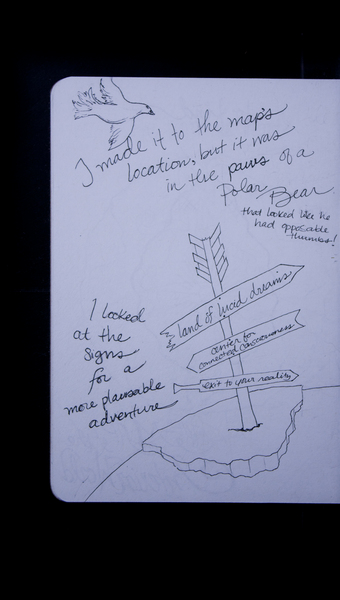 I made it to the map's
location, but it was
in the paws of a
Polar Bear
that looked like he
had opposable
thumbs!
land of lucid dreams
center for
connected consciousness
exit to your reality
I looked
at the
signs
for a
more plausable
adventure